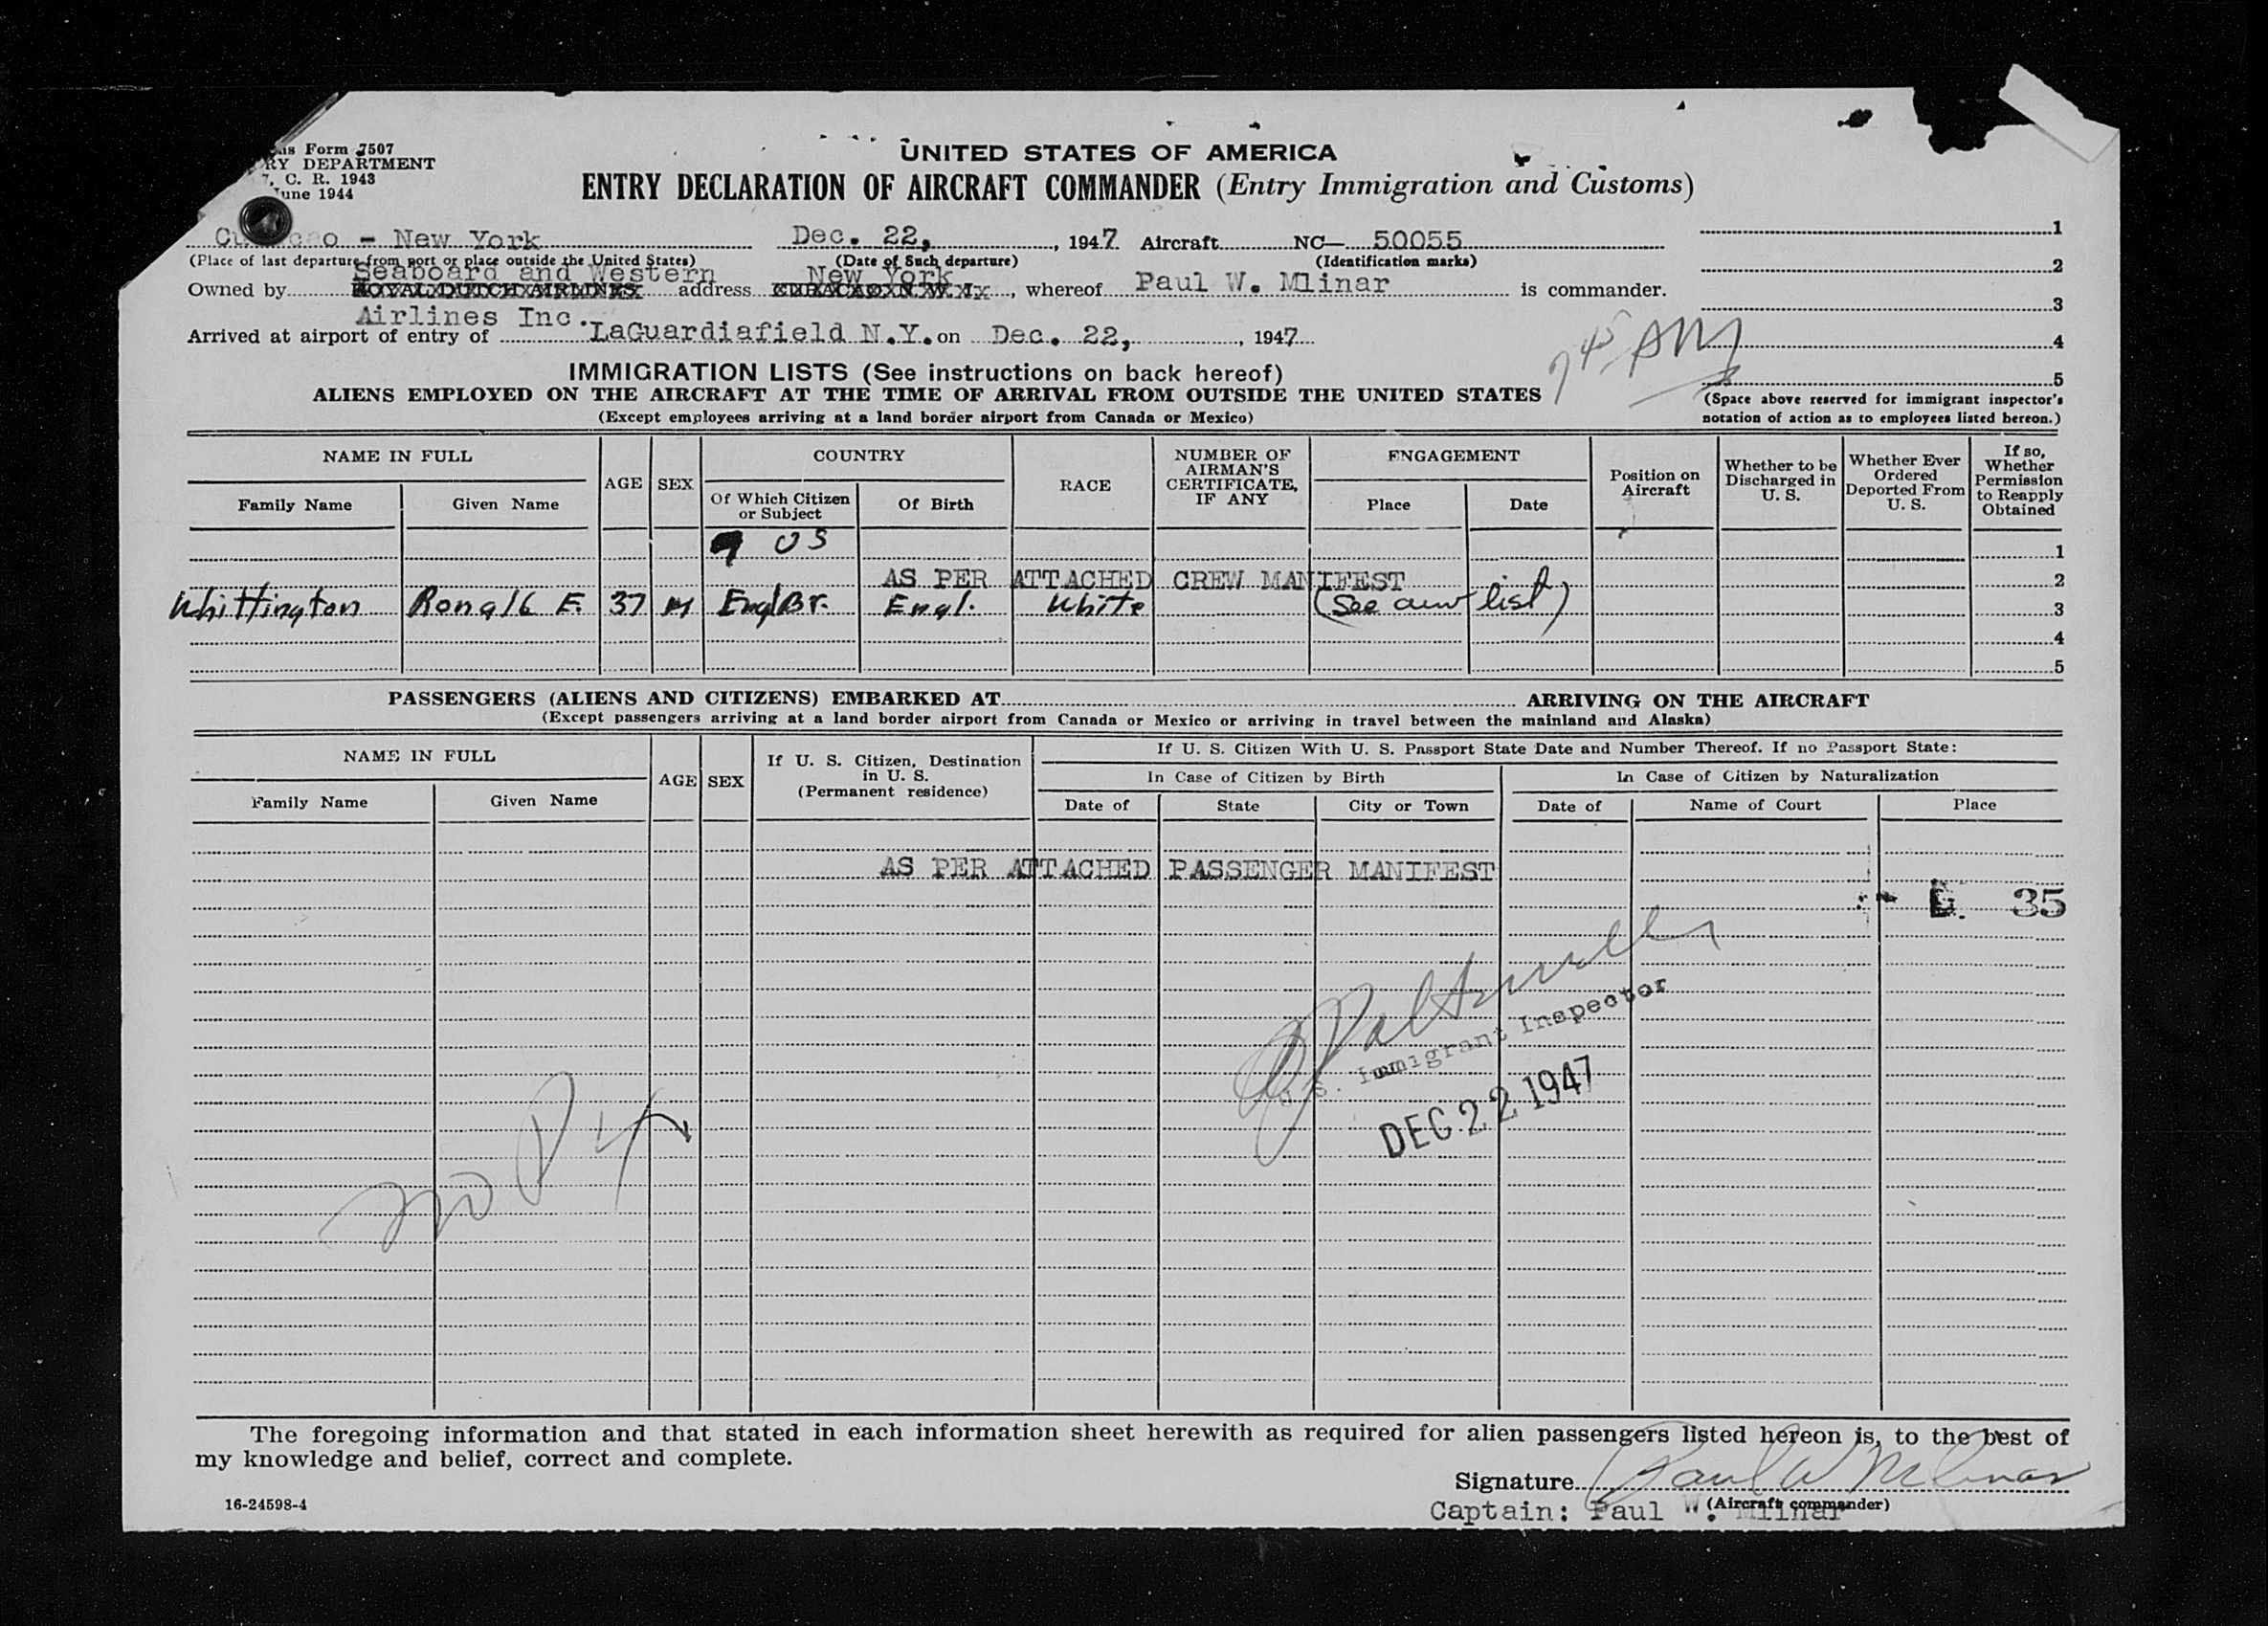 Form 7507
DEPARTMENT
C. R. 1943
June 1944
UNITED STATES OF AMERICA
ENTRY DECLARATION OF AIRCRAFT COMMANDER (Entry Immigration and Customs)
- New York Dec. 22, , 1947 Aircraft NC— 50055
(Place of last departure from port or place outside the United States) (Date of Such departure) (Identification marks)
Seaboard and Western New York
Owned by ROYAL DUTCH AIRLINES address CURACAO N.W.I. , whereof Paul W. Mlinar is commander.
Airlines Inc.
Arrived at airport of entry of LaGuardiafield N.Y. on Dec. 22, , 1947
1
2
3
4
5
7 45 AM
(Space above reserved for immigrant inspector's
notation of action as to employees listed hereon.)
IMMIGRATION LISTS (See instructions on back hereof)
ALIENS EMPLOYED ON THE AIRCRAFT AT THE TIME OF ARRIVAL FROM OUTSIDE THE UNITED STATES
(Except employees arriving at a land border airport from Canada or Mexico)
NAME IN FULL
Family Name Given Name
AGE SEX
COUNTRY
Of Which Citizen or Subject Of Birth
RACE
NUMBER OF AIRMAN'S CERTIFICATE, IF ANY
ENGAGEMENT
Place Date
Position on Aircraft
Whether to be Discharged in U. S.
Whether Ever Ordered Deported From U. S.
If so, Whether Permission to Reapply Obtained
9 US 1
AS PER ATTACHED CREW MANIFEST 2
Whittington Ronald F. 37 M Engl Br. Engl. White (See crew list) 3
4
5
PASSENGERS (ALIENS AND CITIZENS) EMBARKED AT ARRIVING ON THE AIRCRAFT
(Except passengers arriving at a land border airport from Canada or Mexico or arriving in travel between the mainland and Alaska)
NAME IN FULL
Family Name Given Name
AGE SEX
If U. S. Citizen, Destination in U. S. (Permanent residence)
If U. S. Citizen With U. S. Passport State Date and Number Thereof. If no Passport State:
In Case of Citizen by Birth In Case of Citizen by Naturalization
Date of State City or Town Date of Name of Court Place
AS PER ATTACHED PASSENGER MANIFEST
35
U.S. Immigrant Inspector
DEC 22 1947
no
The foregoing information and that stated in each information sheet herewith as required for alien passengers listed hereon is, to the best of
my knowledge and belief, correct and complete.
Signature Paul W Mlinar
16-24598-4
(Aircraft commander)
Captain: Paul W. Mlinar